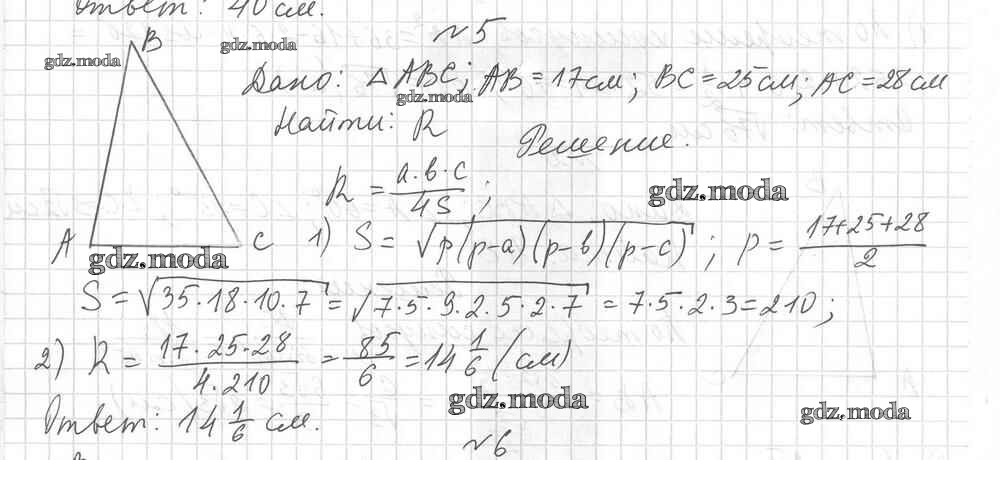 Ответ: 40 см.
№5
B
gdz.moda
gdz.moda
Дано: △ABC; AB = 17см; BC = 25см; AC = 28см
gdz.moda
Найти: R
Решение.
R = a·b·c / 4S ;
gdz.moda
A
C
gdz.moda
1) S = √p(p-a)(p-b)(p-c) ; p = 17+25+28 / 2
S = √35·18·10·7 = √7·5·9·2·5·2·7 = 7·5·2·3=210;
2) R = 17·25·28 / 4·210 = 85/6 = 14 1/6 (см)
gdz.moda
gdz.moda
Ответ: 14 1/6 см.
№6